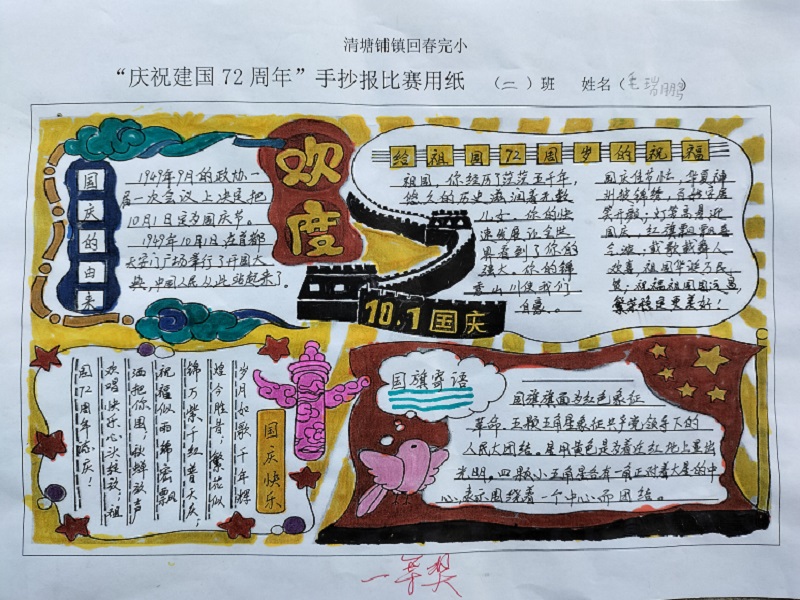 清塘铺镇回春完小
“庆祝建国72周年”手抄报比赛用纸 （二）班 姓名（毛瑞鹏）
国庆的由来
1949年9月的政协一
届一次会议上决定把
10月1日定为国庆节。
1949年10月1日,在首都
天安门广场举行了开国大
典,中国人民从此站起来了。
欢度
10.1国庆
给祖国72周岁的祝福
祖国，你经历了茫茫五千年，
悠久的历史滋润着无数
儿女。你的快
速发展让全世
界看到了你的
强大。你的锦
秀山川使我们
自豪。
国庆佳节忙，华夏神
州披锦绣，百姓家居
笑开颜，灯笼高悬迎
国庆，红旗飘飘
载歌载舞人
欢喜,祖国华诞万民
贺；祝福祖国国运昌，
繁荣稳定更美好！
岁月如歌千年辉
煌今胜昔；繁花似
锦万紫千红普天庆；
祝福似雨绵密飘
洒把你围；秋蝉放声
欢唱快乐心头绽放；祖
国72周年际庆！
国庆快乐
国旗寄语
国旗旗面为红色象征
革命，五颗五角星象征共产党领导下的
人民大团结。星用黄色是为着在红地上显出
光明。四颗小五角星各有一角正对着大星的中
心,表示围绕着一个中心而团结。
一等奖